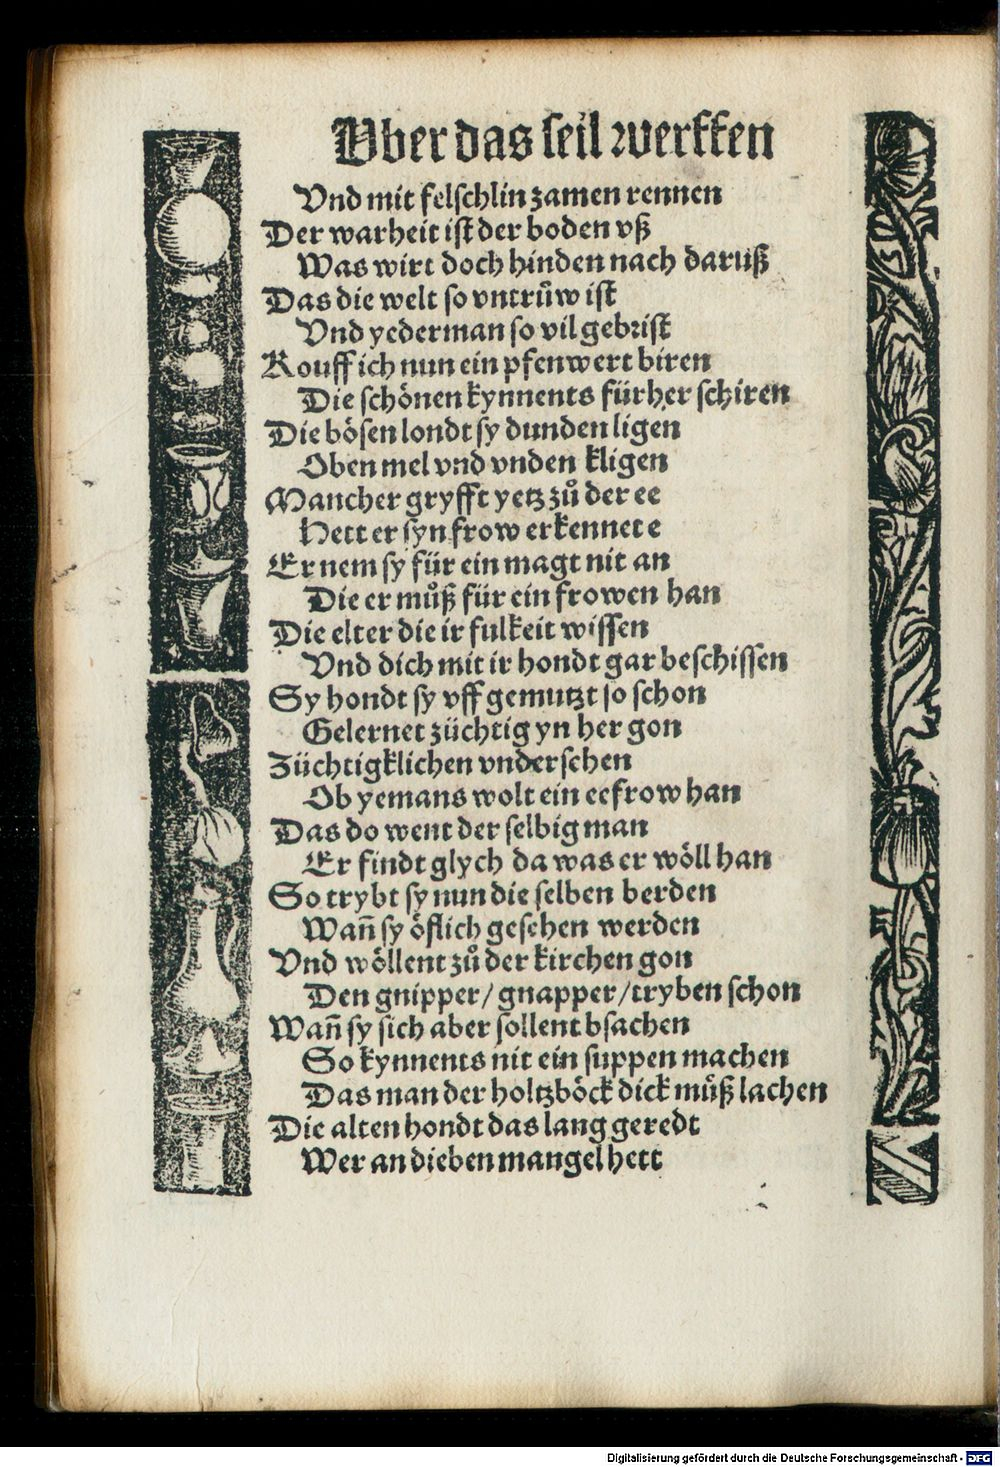 Vber das seil werffen
Vnd mit felschlin zamen rennen
Der warheit ist der boden vß
Was wirt doch hinden nach daruß
Das die welt so vntrüw ist
Vnd yederman so vil gebrist
Kouff ich nun ein pfenwert biren
Die schönen kynnents fürher schiren
Die bösen londt sy dunden ligen
Oben mel vnd vnden kligen
Mancher gryfft yetz zů der ee
Hett er syn frow erkennet e
Er nem sy für ein magt nit an
Die er můß für ein frowen han
Die elter die ir fulkeit wissen
Vnd dich mit ir hondt gar beschissen
Sy hondt sy vff gemutzt so schon
Gelernet züchtig yn her gon
Züchtigklichen vndersehen
Ob yemans wolt ein eefrow han
Das do went der selbig man
Er findt glych da was er wöll han
So trybt sy nun die selben berden
Wañ sy öflich gesehen werden
Vnd wöllent zů der kirchen gon
Den gnipper/gnapper/tryben schon
Wañ sy sich aber sollent bsachen
So kynnents nit ein suppen machen
Das man der holtzböck dick můß lachen
Die alten hondt das lang geredt
Wer an dieben mangel hett
Digitalisierung gefördert durch die Deutsche Forschungsgemeinschaft - DFG